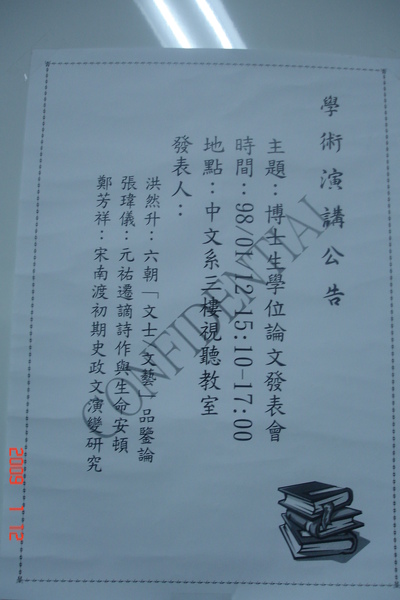 學術演講公告
主題：博士生學位論文發表會
時間：98/01/12 15:10-17:00
地點：中文系三樓視聽教室
發表人：
洪然升：六朝「文士」文藝」品鑒論
張瑋儀：元祐遷謫詩作與生命安頓
鄭芳祥：宋南渡初期史政文演變研究
CONFIDENTIAL
2009 1 12